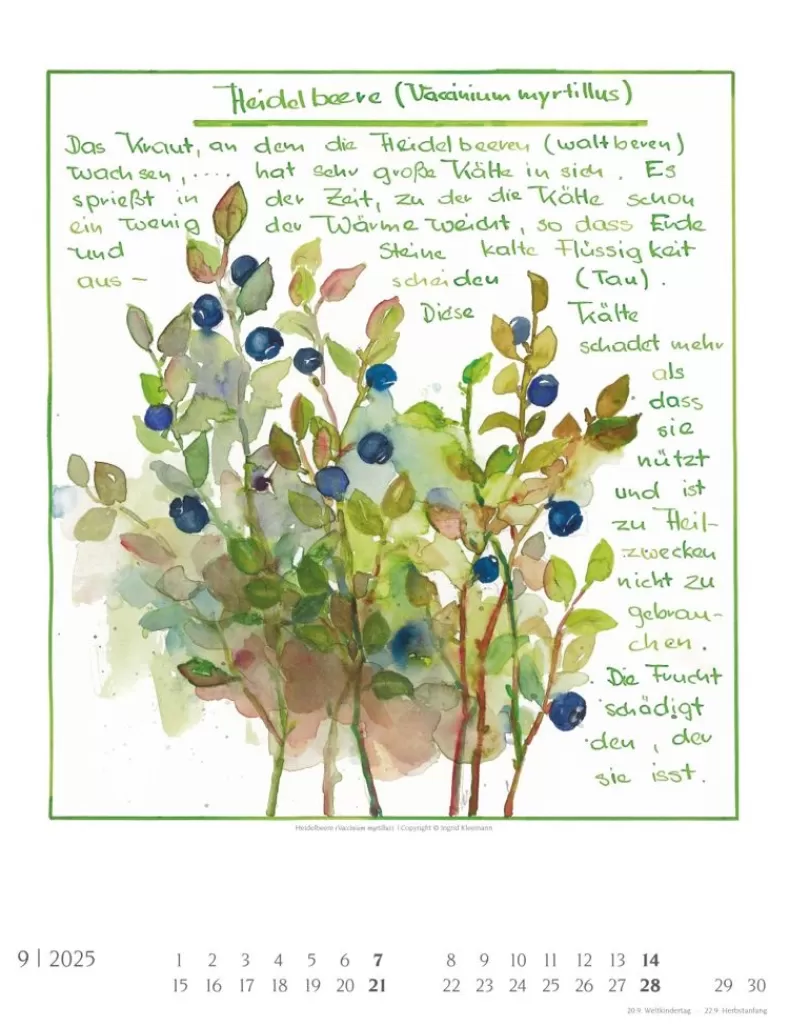 Heidelbeere (Vaccinium myrtillus)
Das Kraut, an dem die Heidelbeeren (waltberen)
wachsen, .... hat sehr große Kälte in sich. Es
sprießt in der Zeit, zu der die Kälte schon
ein wenig der Wärme weicht, so dass Erde
und Steine kalte Flüssigkeit
aus- scheiden (Tau).
Diese Kälte
schadet mehr
als
dass
sie
nützt
und ist
zu Heil-
zwecken
nicht zu
gebrau-
chen.
Die Frucht
schädigt
den, der
sie isst.
Heidelbeere (Vaccinium myrtillus) | Copyright © Ingrid Kleemann
9 | 2025
1 2 3 4 5 6 7 8 9 10 11 12 13 14
15 16 17 18 19 20 21 22 23 24 25 26 27 28 29 30
20.9. Weltkindertag · 22.9. Herbstanfang